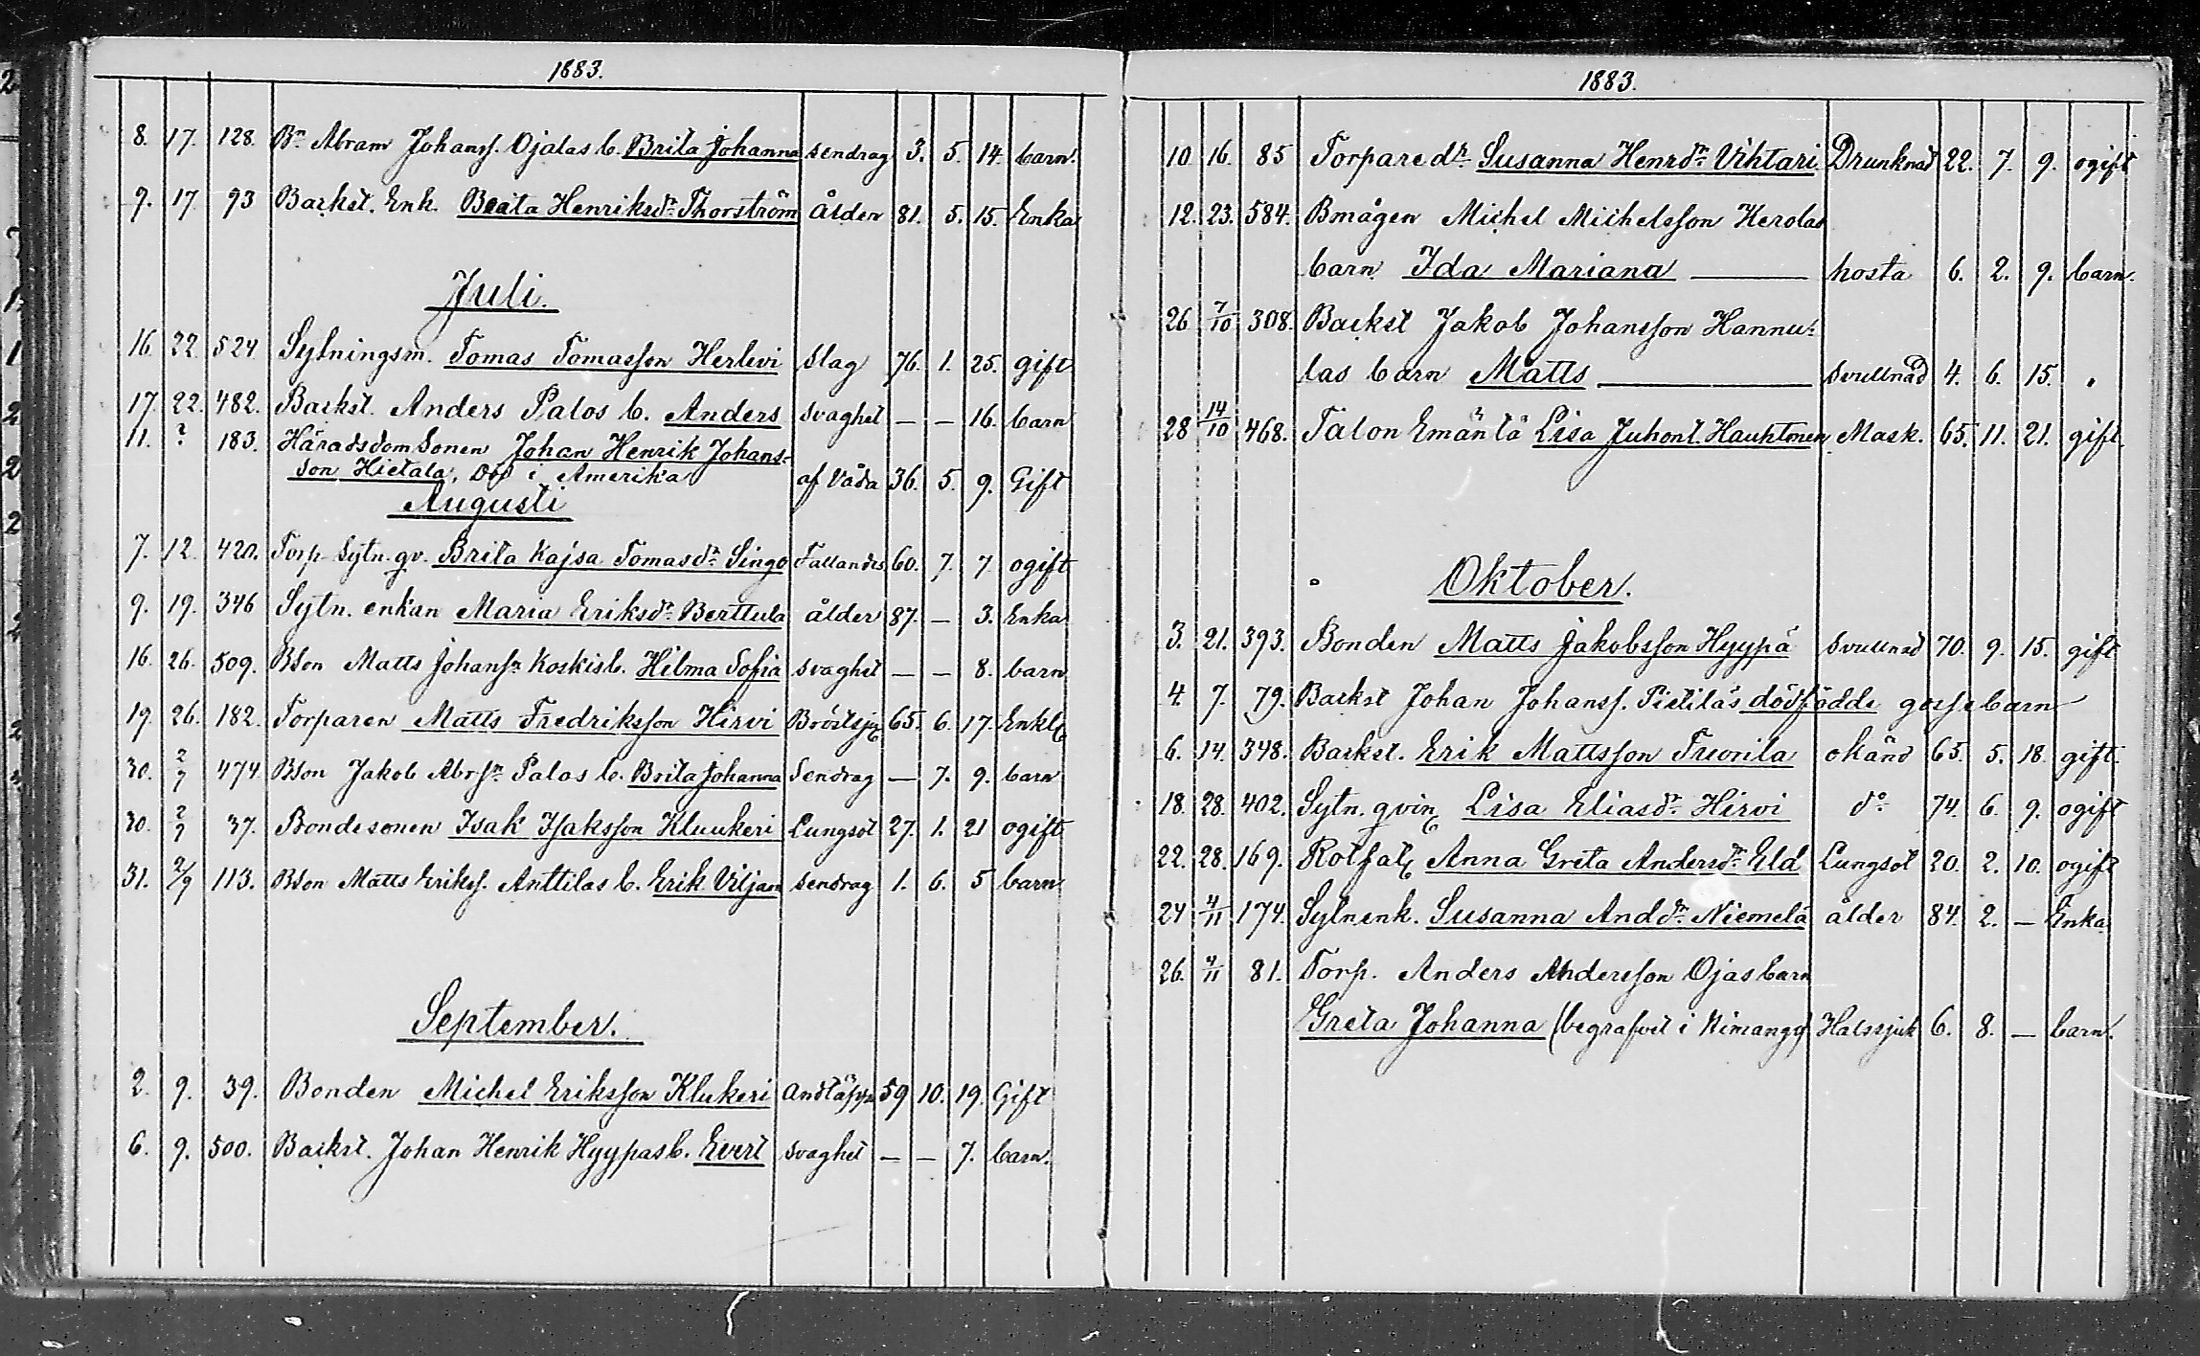 1883.
8. 17. 128. Bn Abram Johanss. Ojalas b. Brita Johanna sendrag 3. 5. 14. barn.
9. 17. 93 Backst. Enk. Beata Henriksdr Thorström Ålder 81. 5. 15. Enka
Juli.
16. 22. 524 Sytningsm. Tomas Tomasson Herlevi Slag 76. 1. 25. gift
17. 22. 482. Backst. Anders Palos b. Anders svaghet — — 16. barn
11. ? 183. Häradsdom Sonen Johan Henrik Johans-
son Hietala, död i Amerika af Våda 36. 5. 9. Gift
Augusti
7. 12. 420. Torp Sytn. qv. Brita Kajsa Tomasdr Singo Fallandes 60. 7. 7 ogift
9. 19. 346 Sytn. enkan Maria Eriksdr Berttula ålder 87. — 3. Enka
16. 26. 509. Bson Matts Johanssn Koskis b. Hilma Sofia svaghet — — 8. barn
19. 26. 182. Torparen Matts Fredriksson Hirvi Bröstsju 65. 6. 17. Enkl
30. 2/9 474 Bson Jakob Abrsn Palos b. Brita Johanna Sendrag — 7. 9. barn
30. 2/9 37. Bondesonen Isak Isaksson Kluukeri Lungsot 27. 1. 21 ogift
31. 2/9 113. Bson Matts Erikss. Anttilas b. Erik Viljam sendrag 1. 6. 5 barn
September.
2. 9. 39. Bonden Michel Eriksson Klukeri Andtäppa 59 10. 19. Gift
6. 9. 500. Backst. Johan Henrik Hyypas b. Evert svaghet — — 7. barn.
1883.
10 16. 85 Torparedr. Susanna Henrdr Vihtari Drunknad 22. 7. 9. ogift
12. 23. 584. Bmågen Michel Michelsson Kerolas
barn Ida Mariana — hosta 6. 2. 9. barn.
26 7/10 308. Backst Jakob Johansson Hannu-
las barn Matts — Svullnad 4. 6. 15. "
28 14/10 468. Talon Emäntä Lisa Juhont. Hauhtonen Mask. 65. 11. 21. gift
Oktober.
3. 21. 393. Bonden Matts Jakobsson Hyypä Svullnad 70. 9. 15. gift
4. 7. 79. Backst Johan Johanss. Pietiläs dödfödde gossebarn
6. 14. 348. Backst. Erik Mattsson Tuorila okänd 65. 5. 18. gift.
18. 28. 402. Sytn. qvin Lisa Eliasdr Hirvi do 74. 6. 9. ogift
22. 28. 169. Rotfat Anna Greta Andersdr Eld Lungsot 20. 2. 10. ogift
24 4/11 174. Sytn enk. Susanna Anddr Niemelä ålder 84. 2. — Enka
26. 4/11 81. Torp. Anders Andersson Ojas barn
Greta Johanna (begrafvet i Himango) Halssjuk 6. 8. — barn.